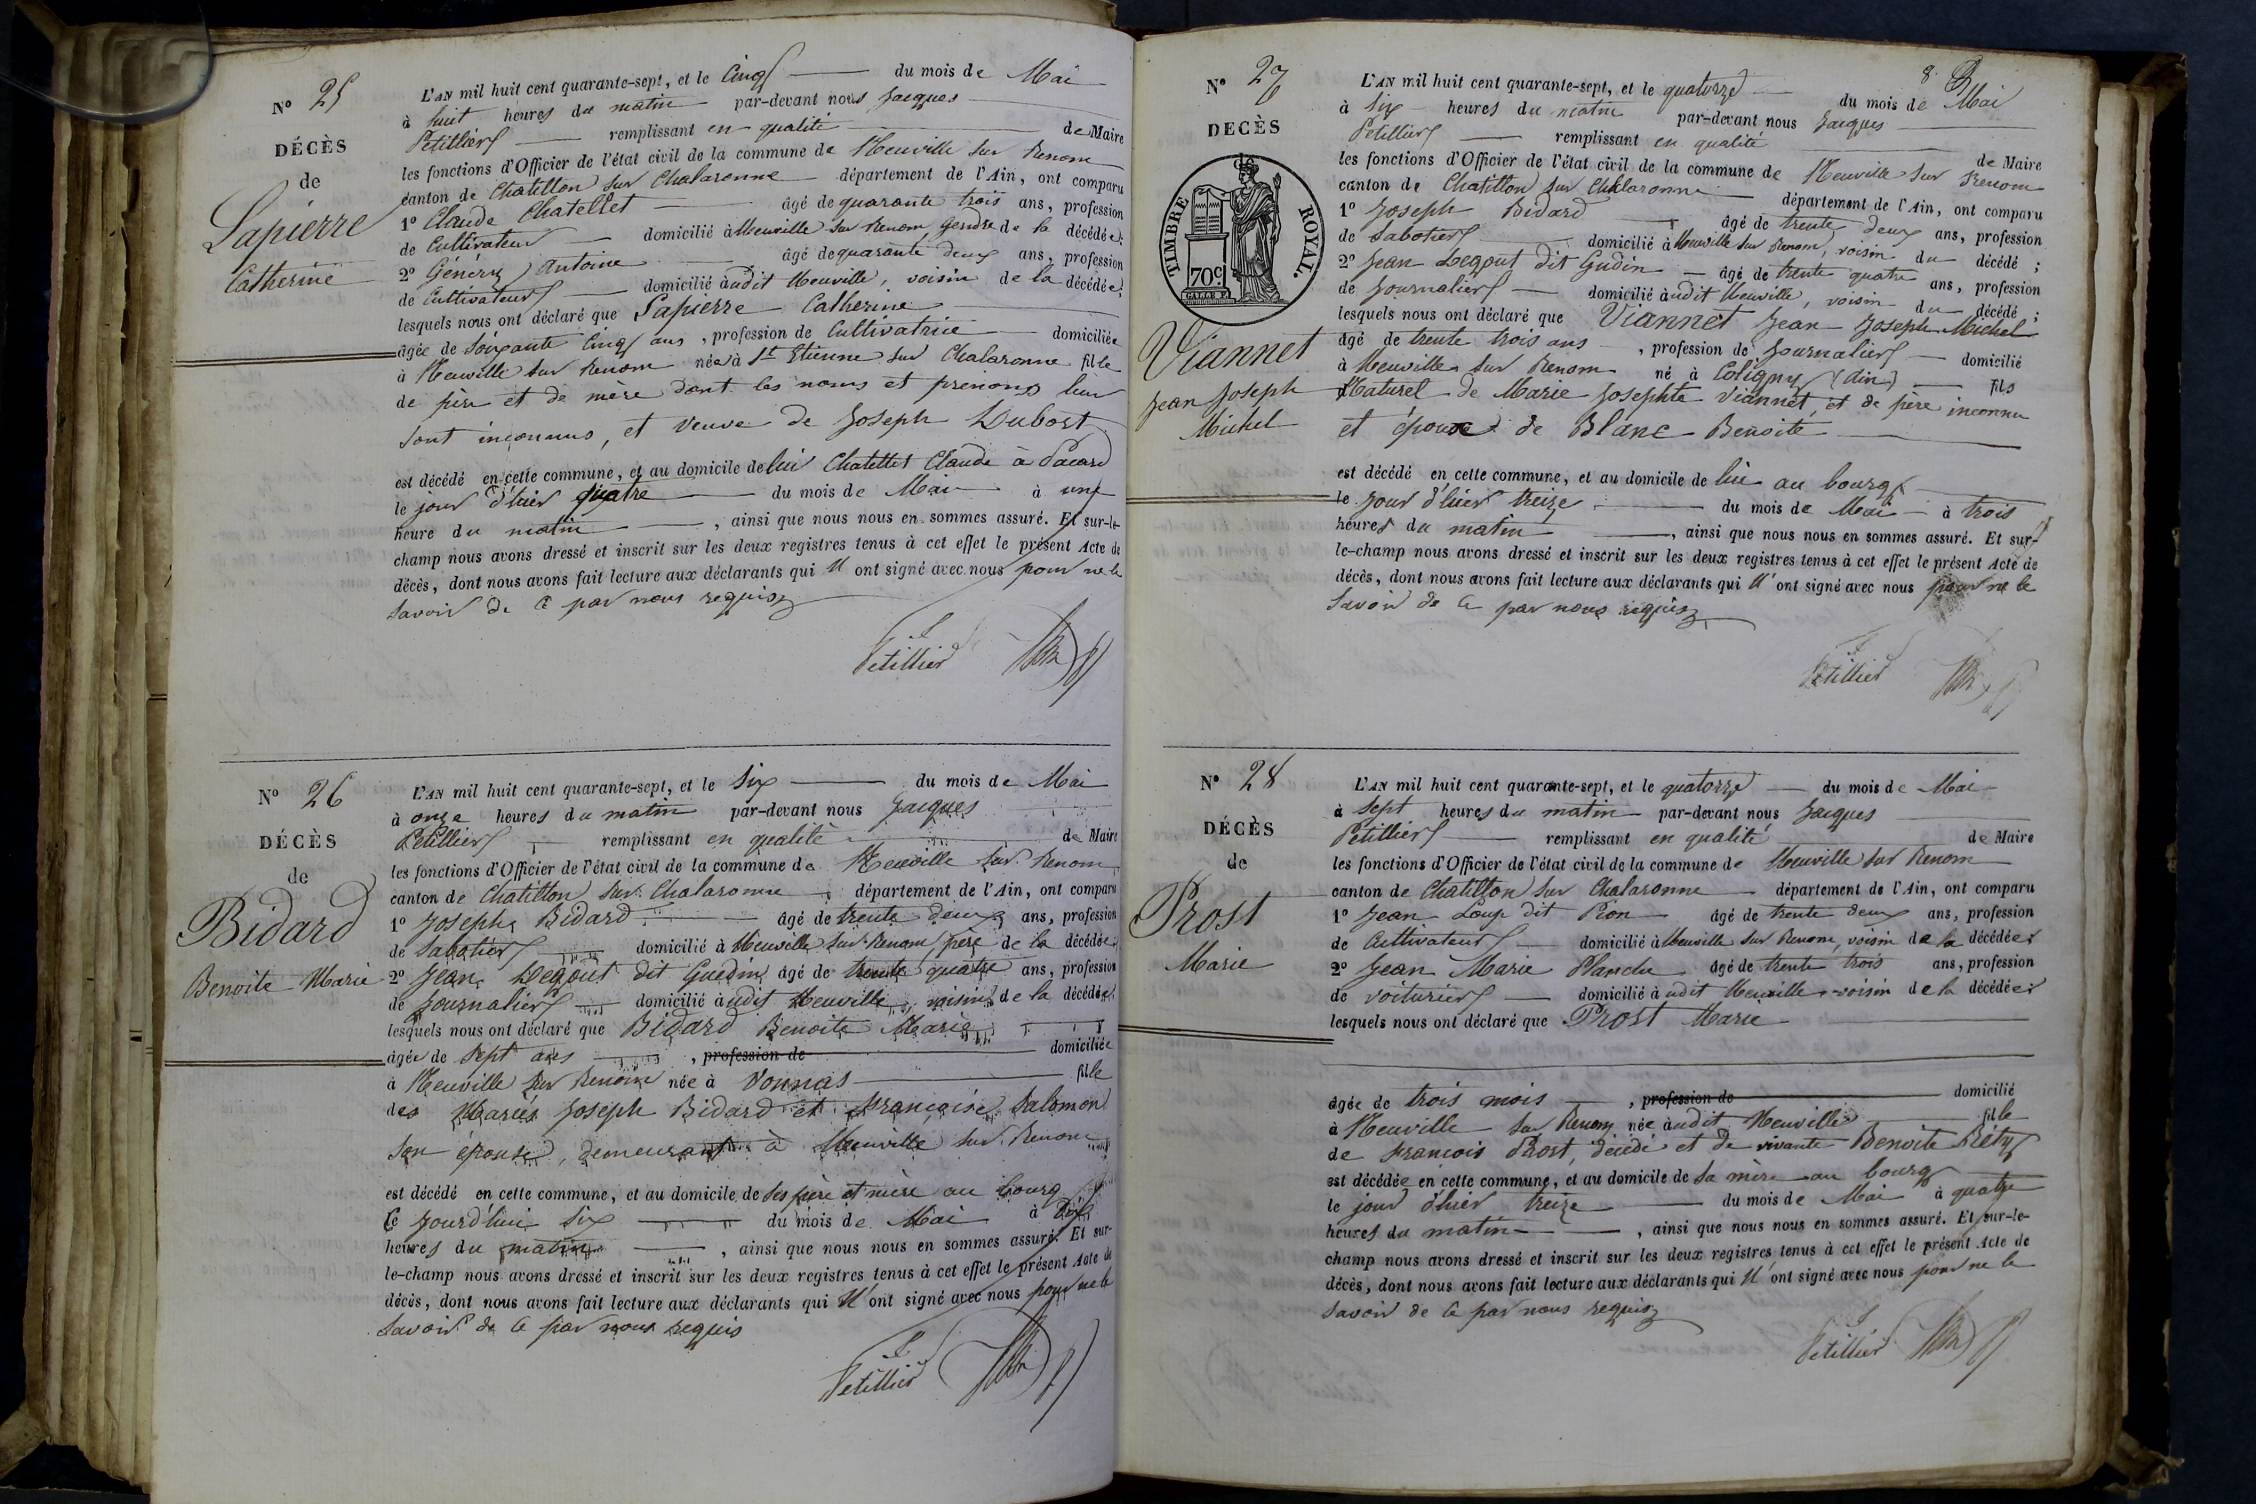 N° 25
DÉCÈS
de
Lapierre
Catherine
L'AN mil huit cent quarante-sept, et le cinq du mois de Mai
à huit heures du matin par-devant nous Jacques
Petillier remplissant en qualité de Maire
les fonctions d'Officier de l'état civil de la commune de Neuville sur Renom
canton de Chatillon sur Chalaronne département de l'Ain, ont comparu
1° Claude Chatellet âgé de quarante trois ans, profession
de Cultivateur domicilié à Neuville sur Renom, gendre de la décédée;
2° Génery Antoine âgé de quarante deux ans, profession
de Cultivateur domicilié audit Neuville, voisin de la décédée;
lesquels nous ont déclaré que Lapierre Catherine
âgée de soixante cinq ans, profession de Cultivatrice domiciliée
à Neuville sur Renom née à St Etienne sur Chalaronne fille
de père et de mère dont les noms et prénoms lui
sont inconnus, et veuve de Joseph Dubost
est décédé en cette commune, et au domicile de lui Chatellet Claude à Pacard
le jour d'hier quatre du mois de Mai à une
heure du matin, ainsi que nous nous en sommes assuré. Et sur-le-
champ nous avons dressé et inscrit sur les deux registres tenus à cet effet le présent Acte de
décès, dont nous avons fait lecture aux déclarants qui n'ont signé avec nous pour ne le
savoir de ce par nous requis
Petillier
N° 26
DÉCÈS
de
Bidard
Benoite Marie
L'AN mil huit cent quarante-sept, et le six du mois de Mai
à onze heures du matin par-devant nous Jacques
Petillier remplissant en qualité de Maire
les fonctions d'Officier de l'état civil de la commune de Neuville sur Renom
canton de Chatillon sur Chalaronne, département de l'Ain, ont comparu
1° Joseph Bidard âgé de trente deux ans, profession
de Sabotier domicilié à Neuville sur Renom, père de la décédée;
2° Jean Legout dit Guedin âgé de trente quatre ans, profession
de Journalier domicilié audit Neuville, voisin de la décédée;
lesquels nous ont déclaré que Bidard Benoite Marie
âgée de sept ans, profession de domiciliée
à Neuville sur Renom née à Vonnas fille
des Mariés Joseph Bidard et Françoise Salomon
son épouse, demeurant à Neuville sur Renom
est décédé en cette commune, et au domicile de ses père et mère au bourg
le jourd'hui six du mois de Mai à dix
heures du matin, ainsi que nous nous en sommes assuré. Et sur-
le-champ nous avons dressé et inscrit sur les deux registres tenus à cet effet le présent Acte de
décès, dont nous avons fait lecture aux déclarants qui n'ont signé avec nous pour ne le
savoir de ce par nous requis
Petillier
8.
N° 27
DECÈS
TIMBRE ROYAL.
70c.
Viannet
Jean Joseph
Michel
L'AN mil huit cent quarante-sept, et le quatorze du mois de Mai
à six heures du matin par-devant nous Jacques
Petillier remplissant en qualité de Maire
les fonctions d'Officier de l'état civil de la commune de Neuville sur Renom
canton de Chatillon sur Chalaronne département de l'Ain, ont comparu
1° Joseph Bidard âgé de trente deux ans, profession
de Sabotier domicilié à Neuville sur Renom, voisin du décédé;
2° Jean Legout dit Gudin âgé de trente quatre ans, profession
de Journalier domicilié audit Neuville, voisin du décédé;
lesquels nous ont déclaré que Viannet Jean Joseph Michel
âgé de trente trois ans, profession de Journalier domicilié
à Neuville sur Renom né à Coligny (Ain) fils
Naturel de Marie Josephte Viannet, et de père inconnu
et époux de Blanc Benoite
est décédé en cette commune, et au domicile de lui au bourg
le jour d'hier treize du mois de Mai à trois
heures du matin, ainsi que nous nous en sommes assuré. Et sur-
le-champ nous avons dressé et inscrit sur les deux registres tenus à cet effet le présent Acte de
décès, dont nous avons fait lecture aux déclarants qui n'ont signé avec nous pour ne le
savoir de ce par nous requis
Petillier
N° 28
DÉCÈS
de
Prost
Marie
L'AN mil huit cent quarante-sept, et le quatorze du mois de Mai
à sept heures du matin par-devant nous Jacques
Petillier remplissant en qualité de Maire
les fonctions d'Officier de l'état civil de la commune de Neuville sur Renom
canton de Chatillon sur Chalaronne département de l'Ain, ont comparu
1° Jean Loup dit Pion âgé de trente deux ans, profession
de Cultivateur domicilié à Neuville sur Renom, voisin de la décédée;
2° Jean Marie Planche âgé de trente trois ans, profession
de voiturier domicilié audit Neuville voisin de la décédée;
lesquels nous ont déclaré que Prost Marie
âgée de trois mois, profession de domicilié
à Neuville sur Renom née audit Neuville fille
de François Prost, décédé et de vivante Benoite Béty
est décédée en cette commune, et au domicile de sa mère au bourg
le jour d'hier treize du mois de Mai à quatre
heures du matin, ainsi que nous nous en sommes assuré. Et sur-le-
champ nous avons dressé et inscrit sur les deux registres tenus à cet effet le présent Acte de
décès, dont nous avons fait lecture aux déclarants qui n'ont signé avec nous pour ne le
savoir de ce par nous requis
Petillier